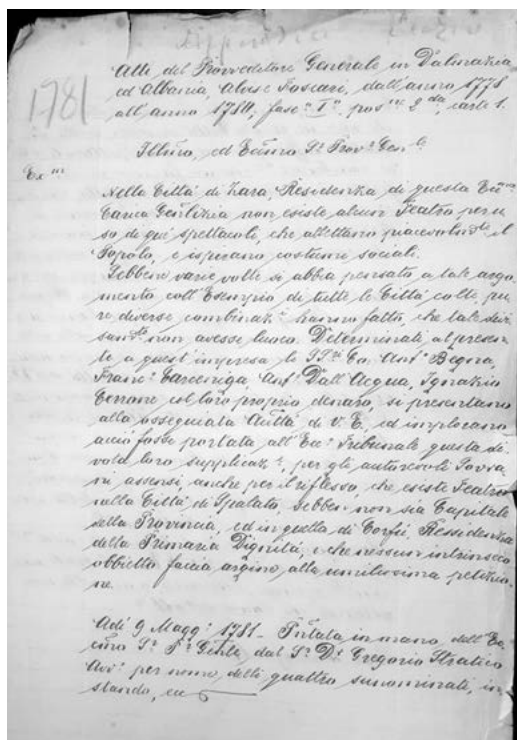 Atti del Provveditore Generale in Dalmazia
ed Albania, Alvise Foscari, dall'anno 1778
1781
all'anno 1781, fasc.° I°, pos.ne 2da, carte 1.
Illmo, ed Eccmo Sr Provr Genle
Exm
Nella Città di Zara, Residenza di questa Eccma
Carica Genlizia non esiste alcun Teatro per u
so di que' spettacoli, che allettano piacevolmte il
Popolo, e ispirano costumi sociali.
Sebbene varie volte si abbia pensato a tale argo
mento coll'Esempio di tutte le Città colte, pu
re diverse combinaze hanno fatto, che tale divi
samto non avesse luoco. Determinati al presen
te a quest'impresa li Co. Antº Begna,
Francº Carceniga, Antº Dall'Acqua, Ignazio
Cerrone col loro proprio denaro, si presentano
alla ossequiata Auttà di V. E. ed implorano
acciò fosse portata all'Eccº Tribunale questa di
vota loro supplicaze, per gli autorevoli Sovra
ni assensi, anche per il riflesso, che esiste Teatro
nella Città di Spalato, sebben non sia Capitale
della Provincia, ed in quella di Corfù, Ressidenza
della Primaria Dignità, e che nessun intrinseco
obbietto faccia argine alla umilissima petizio
ne.
Adi 9 Maggº 1781 - Pntata in mano dell'Ec
cmo Sr Pr Genle dal Sr Dr Gregorio Stratico
Avvº per nome delli quattro sunominati, in
stando, ecc